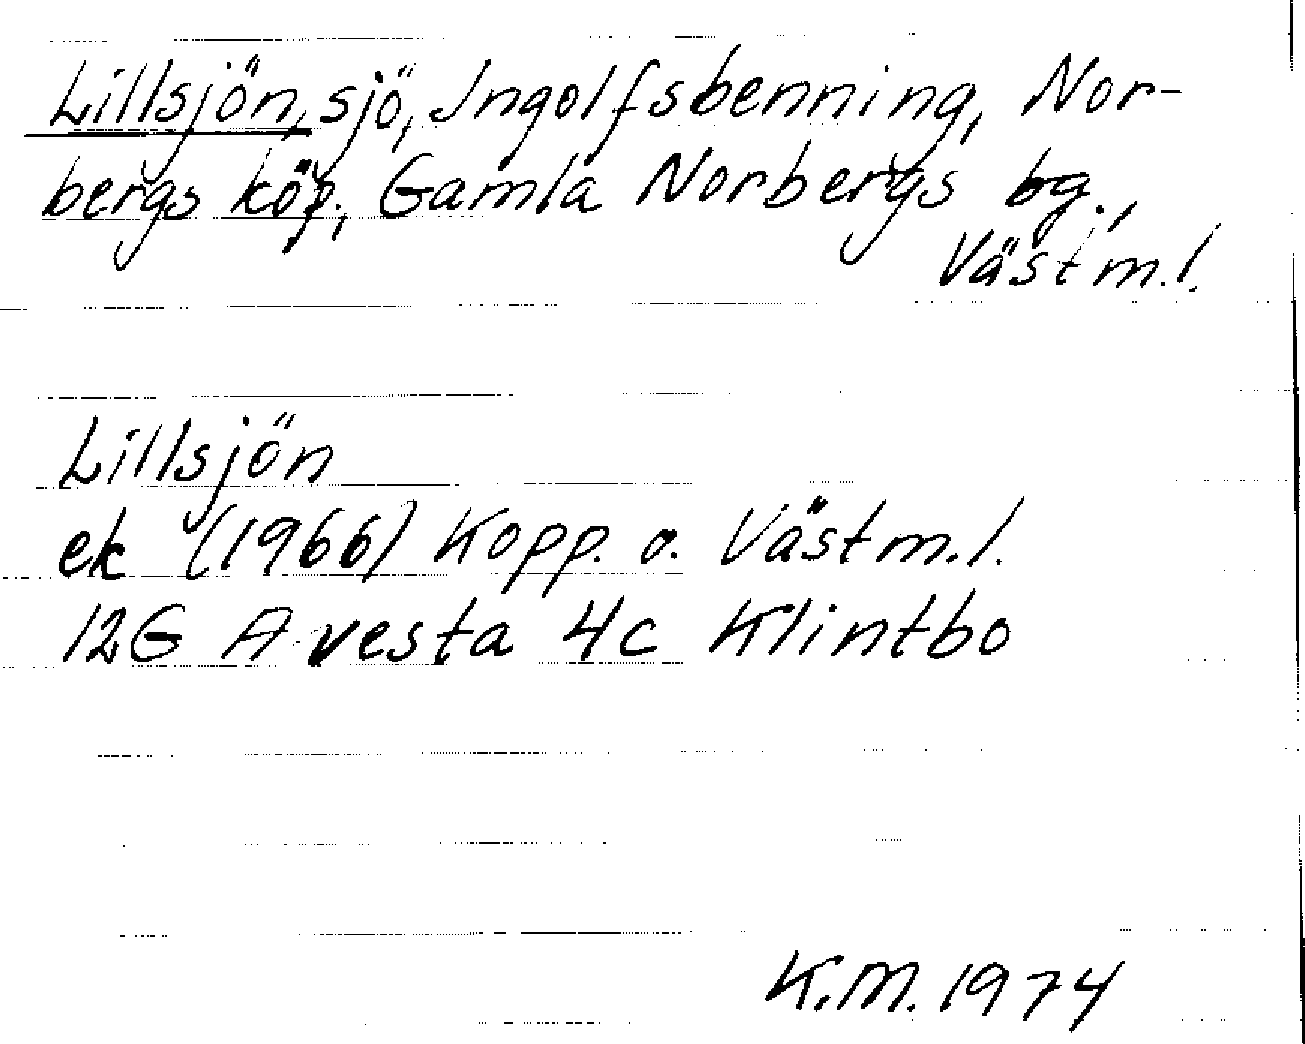 Lillsjön, sjö, Ingolfsbenning, Nor-
bergs köp., Gamla Norbergs bg.,
Västm.l.
Lillsjön
ek (1966) Kopp. o. Västm.l.
12G Avesta 4c Klintbo
K.M. 1974